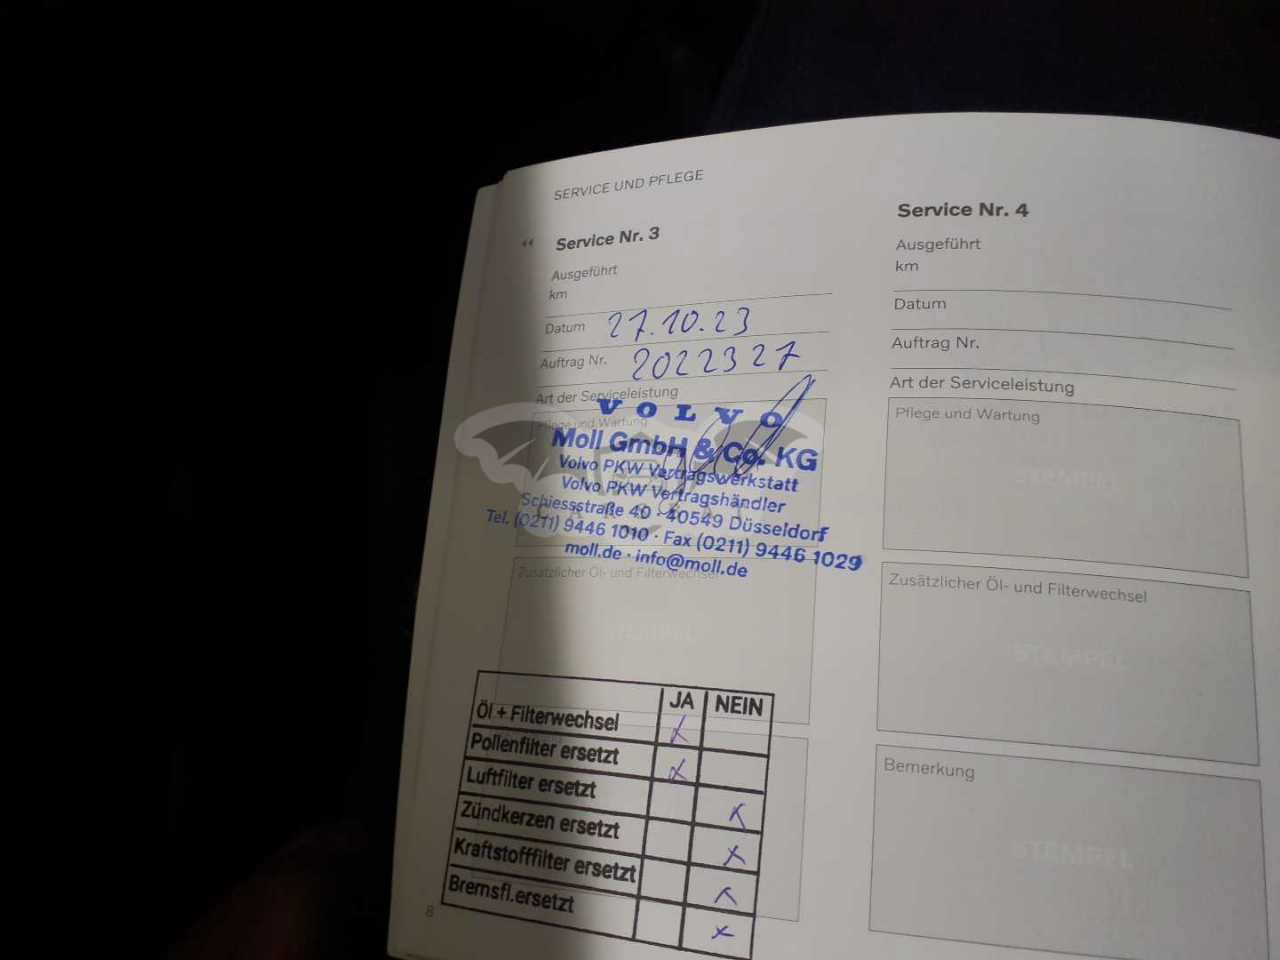 SERVICE UND PFLEGE
Service Nr. 3
Ausgeführt
km
Datum 27.10.23
Auftrag Nr. 2022327
Art der Serviceleistung
Pflege und Wartung
VOLVO
Moll GmbH & Co. KG
Volvo PKW Vertragswerkstatt
Volvo PKW Vertragshändler
Schiessstraße 40 · 40549 Düsseldorf
Tel. (0211) 9446 1010 · Fax (0211) 9446 1029
moll.de · info@moll.de
Zusätzlicher Öl- und Filterwechsel
STEMPEL
JA NEIN
Öl + Filterwechsel x
Pollenfilter ersetzt x
Luftfilter ersetzt x
Zündkerzen ersetzt x
Kraftstofffilter ersetzt x
Bremsfl.ersetzt x
8
Service Nr. 4
Ausgeführt
km
Datum
Auftrag Nr.
Art der Serviceleistung
Pflege und Wartung
STEMPEL
Zusätzlicher Öl- und Filterwechsel
STEMPEL
Bemerkung
STEMPEL